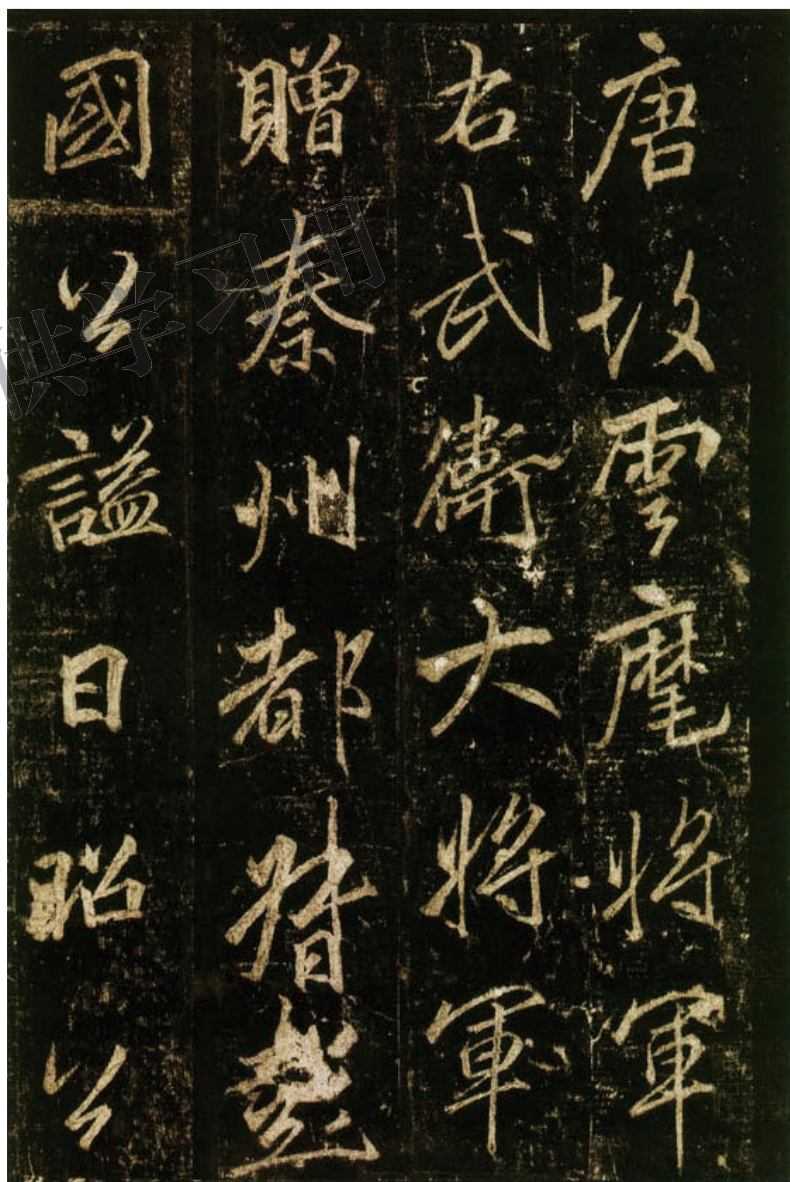 唐故雲麾將軍
右武衛大將軍
贈秦州都督彭
國公謚曰昭公
供学习用